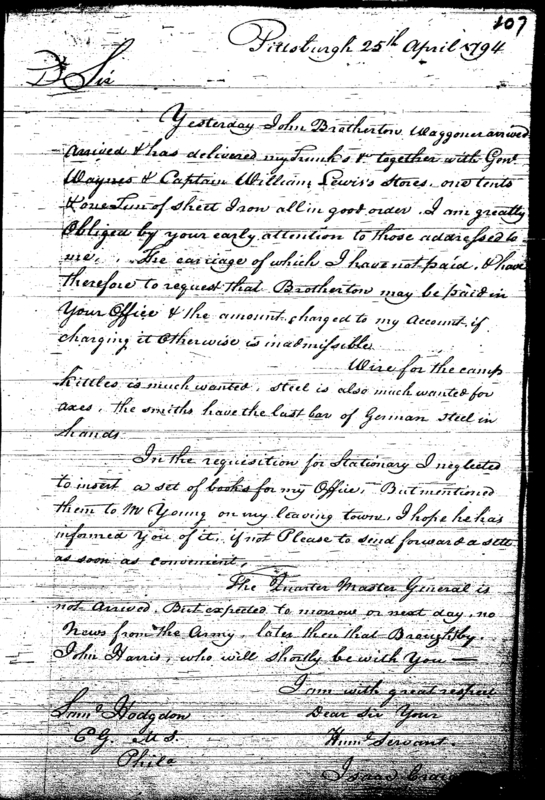 107
Pittsburgh 25th April 1794
Dr Sir
Yesterday John Brotherton Waggoner arrived
arrived & has delivered my Trunks &c together with Genl.
Waynes & Captain William Lewis's Stores, one tents
& one Tun of Sheet Iron all in good order. I am greatly
Obliged by your early attention to those addressed to
me. The carriage of which I have not paid, & have
therefore to request that Brotherton may be paid in
Your Office & the amount charged to my Account, if
charging it Otherwise is inadmissible.
Wire for the camp
kittles is much wanted, steel is also much wanted for
axes, the smiths have the last bar of German steel in
hands
In the requisition for Stationary I neglected
to insert a set of books for my Office, But mentioned
them to Mr Young on my leaving town, I hope he has
informed You of it, if not Please to send forward a sett
as soon as convenient,
The Quarter Master General is
not arrived, But expected to morrow or next day, no
News from the Army, later then that Braught by
John Harris, who will shortly be with You —
I am with great respect
Saml Hodgdon Dear Sir Your
M.S. Huml Servant.
Phila Isaac Craig